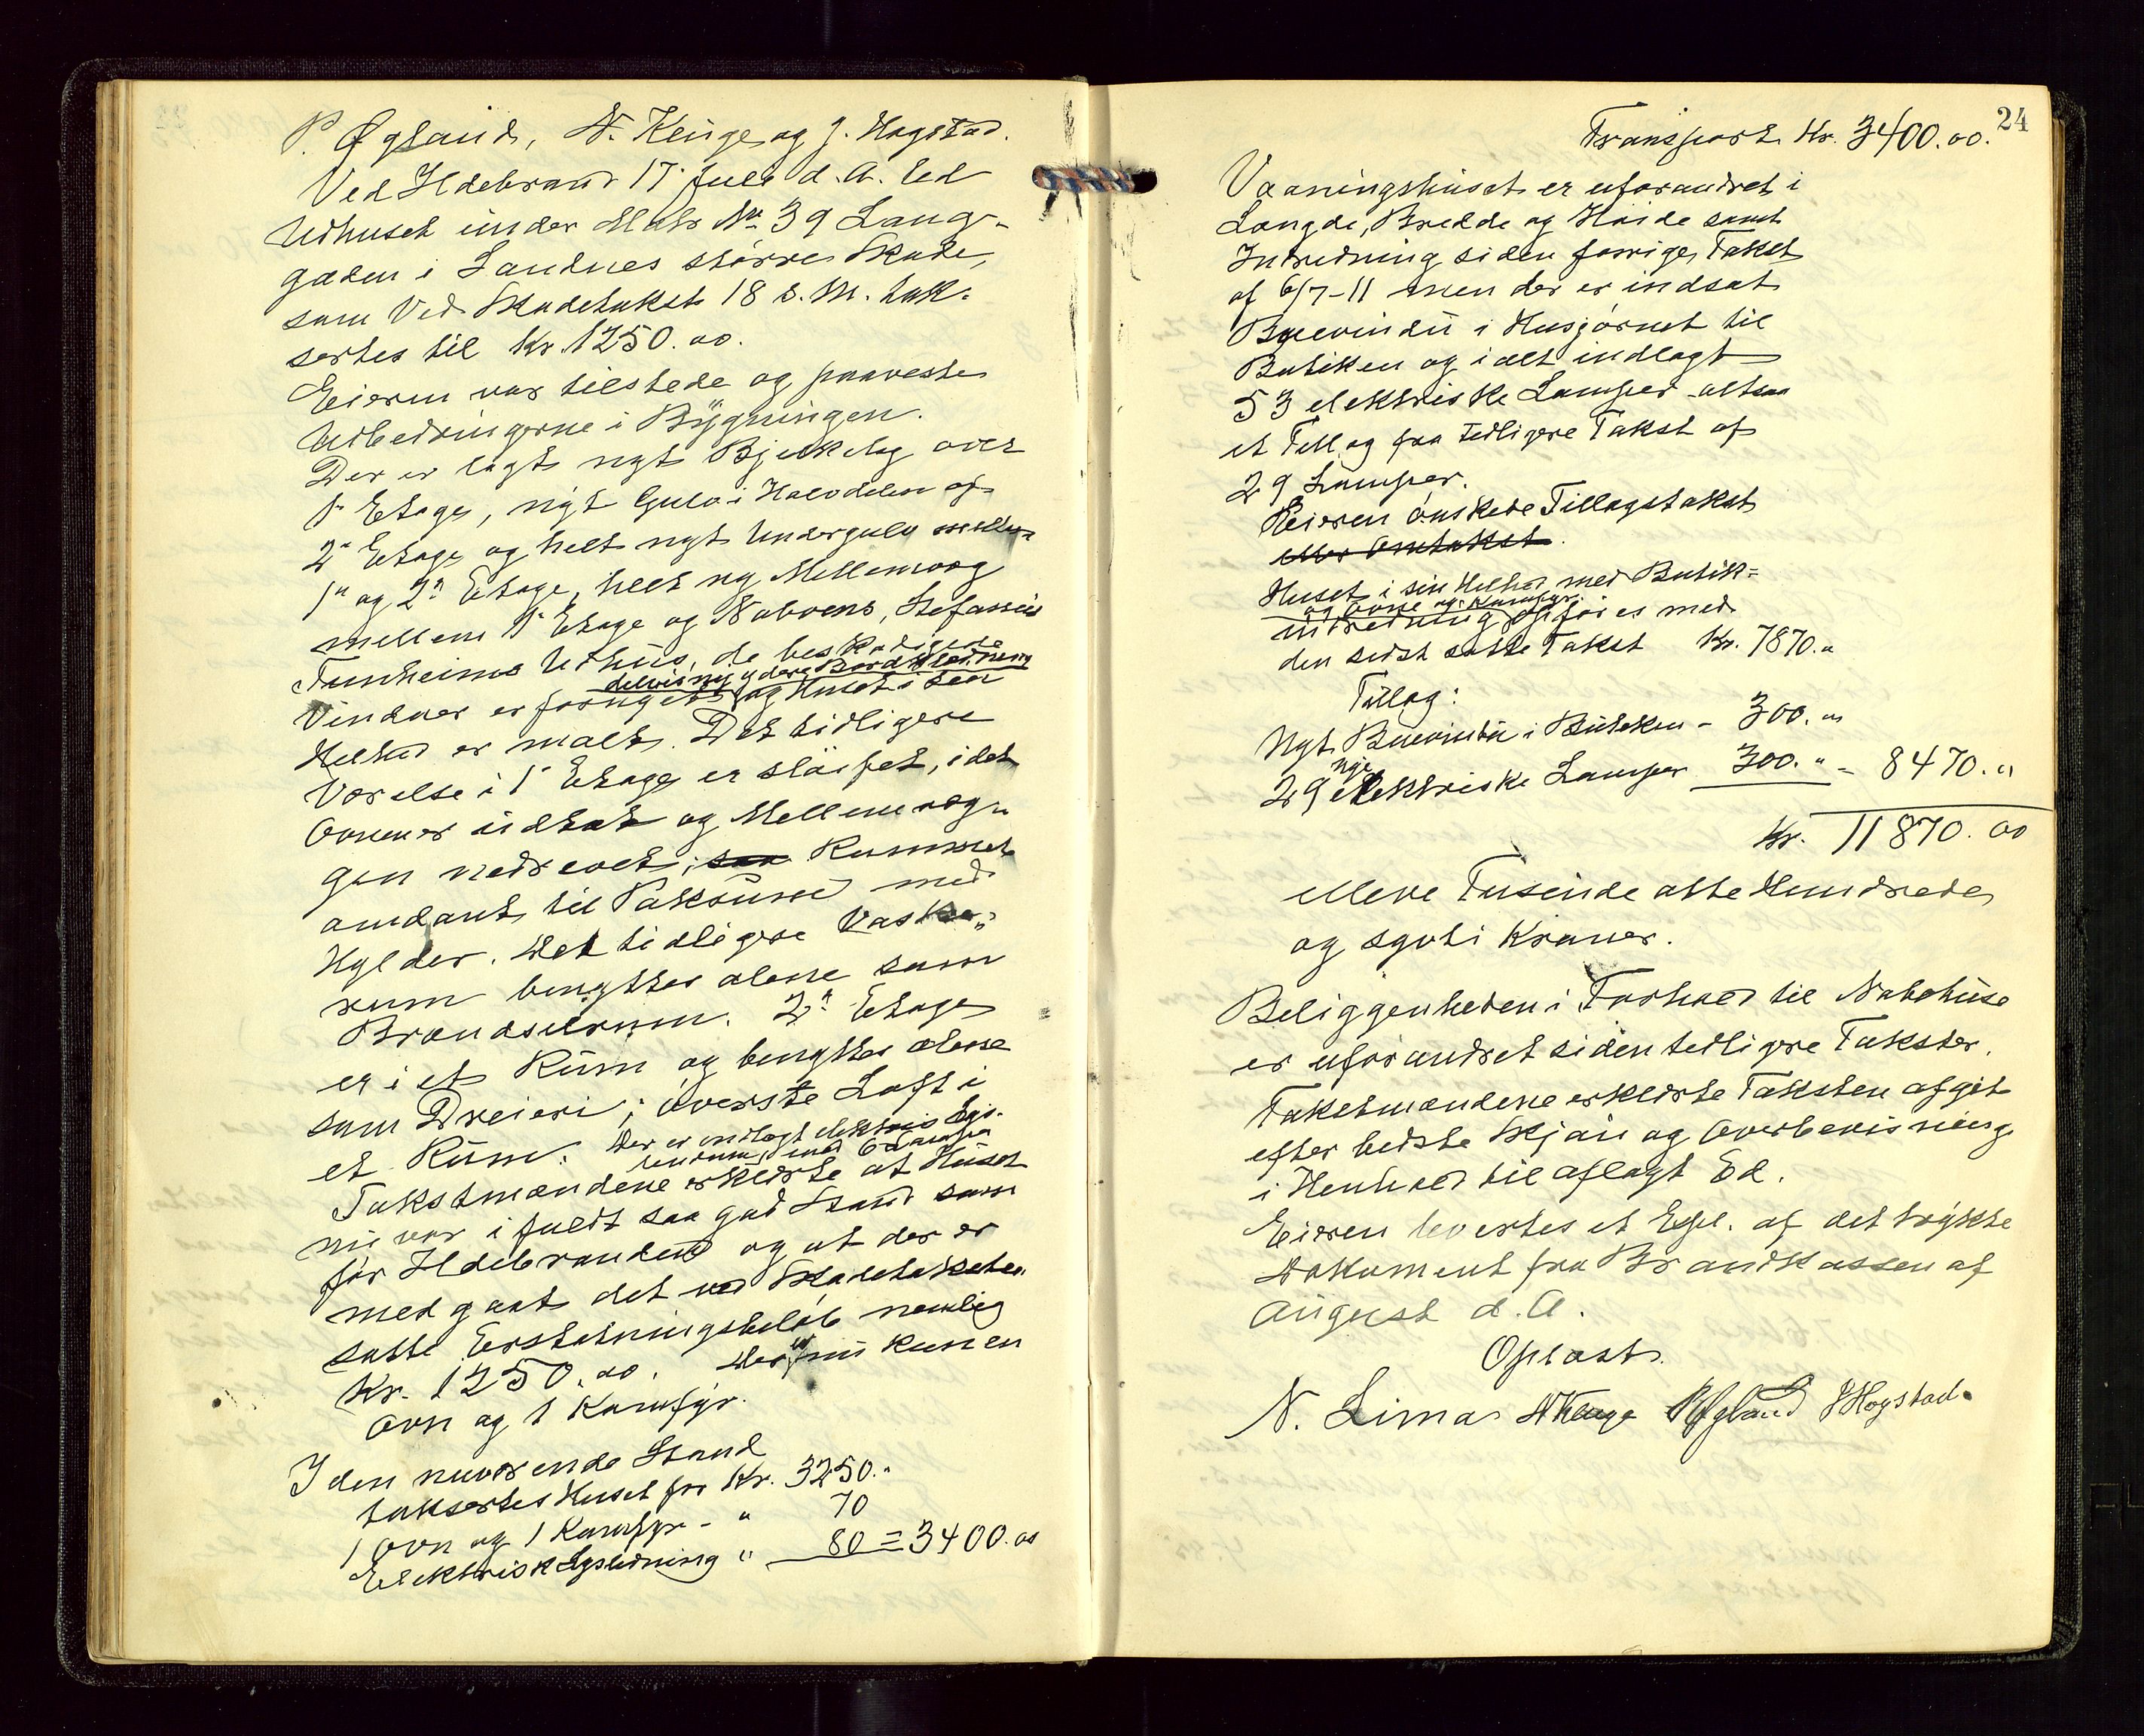 P. Øgland, N. Kenge og J. Hogstad.
Ved Ildebrand 17 Juli d. A. led
Udhuset under Matr No 39 Lang-
gaden i Sandnes større Skade,
som Ved Skadetakst 18 s. M. tak-
sertes til Kr. 1250.00.
Eieren var tilstede og paaviste
Udbedringerne i Bygningen.
Der er lagt nyt Bjelkelag over
1ste Etage, nyt Gulv i Halvdelen af
2n Etage og helt nyt Undergulv mellem
1n og 2n Etage, helt ny Mellemvæg
mellem 1n Etage og Naboens, Stefanius
Tunheims Udhus, de beskadigede
delvis ny ydere Bordklædning
Vinduer er fornyet og Huset i sin
Helhed er malt. Det tidligere
Værelse i 1n Etage er sløifet, idet
Ovnen er udtat og Mellemvæg-
gen nedrevet; saa Rummet
omdant til Pakrum med
Hylder. Det tidligere Vaske-
rum benyttes alene som
Brændselrum. 2n Etage
er i et Rum og benyttes alene
som Dreieri; øverste Loft i
et Rum. Der er indlagt elektrisk Lys.
med 6 Lamper
Takstmændene erklærte at Huset
nu var i fuldt saa god Stand som
før Ildebranden og at der er
medgaat det ved Skadetaksten
satte Erstatningsbeløb nemlig
Kr. 1250.00. Der er nu kun en
Ovn og 1 Komfyr.
I den nuværende Stand
taksertes Huset for Kr. 3250."
1 Ovn og 1 Komfyr - " 70
Elektrisk Lysledning " 80 = 3400.00
24
Transport Kr. 3400.00.
Vaaningshuset er uforandret i
Længde, Bredde og Høide samt
Indredning siden forrige Takst
af 6/7-11 men der er indsat
Buevindu i Husjørnet til
Butiken og ialt indlagt
53 elektriske Lamper - altsaa
et Tillæg fra tidligere Takst af
29 Lamper.
Eieren ønskede Tillægstakst
eller Omtakst.
Huset i sin Helhed med Butik-
og Ovne og Komfyr
indredning opføres med
den sidst satte Takst Kr. 7870."
Tillæg:
Nyt Buevindu i Butiken - 300."
nye
29 elektriske Lamper 300." - 8470."
Kr. 11870.00
elleve Tusinde otte Hundrede
og sytti Kroner.
Beliggenheden i Forhold til Nabohuse
er uforandret siden tidligere Takster.
Takstmændene erklærte Taksten afgit
efter bedste Skjøn og Overbevisning
i Henhold til aflagt Ed.
Eieren levertes et Expl. af det trykte
Dokument fra Brandkassen af
August d. A.
Oplæst.
N. Lima N Kenge P Øgland J Hogstad.